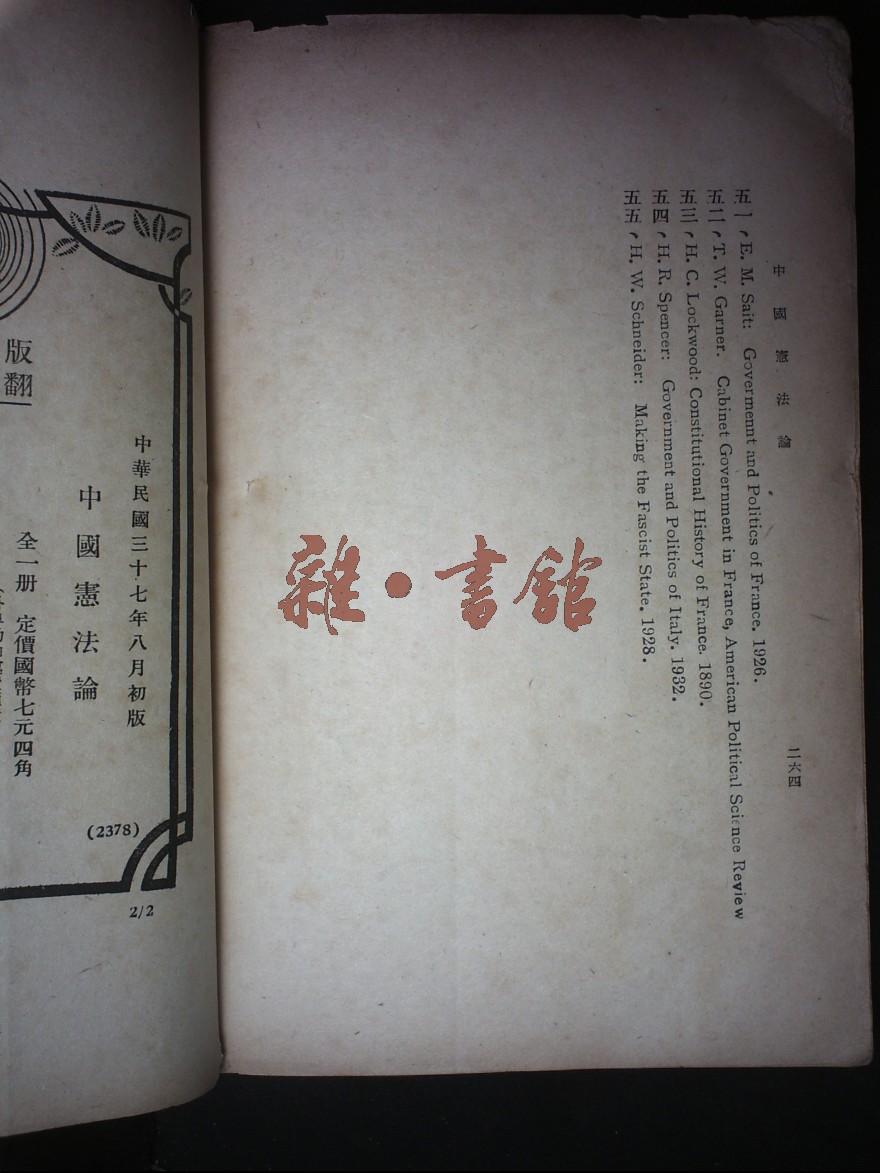 中國憲法論
二六四
五一、E. M. Sait: Govermennt and Politics of France. 1926.
五二、T. W. Garner. Cabinet Government in France, American Political Science Review
五三、H. C. Lockwood: Constitutional History of France. 1890.
五四、H. R. Spencer: Government and Politics of Italy. 1932.
五五、H. W. Schneider: Making the Fascist State. 1928.
雜·書館
中華民國三十七年八月初版
中國憲法論
(2378)
全一册 定價國幣七元四角
版翻
2/2